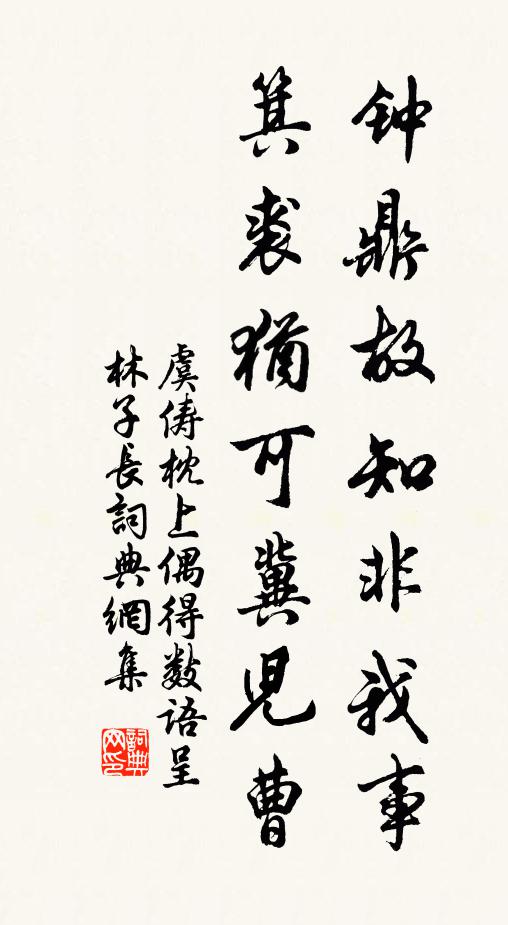 钟鼎故知非我事
箕裘犹可冀児曹
虞俦枕上偶得数语呈
林子長詞典網集
詞典网印